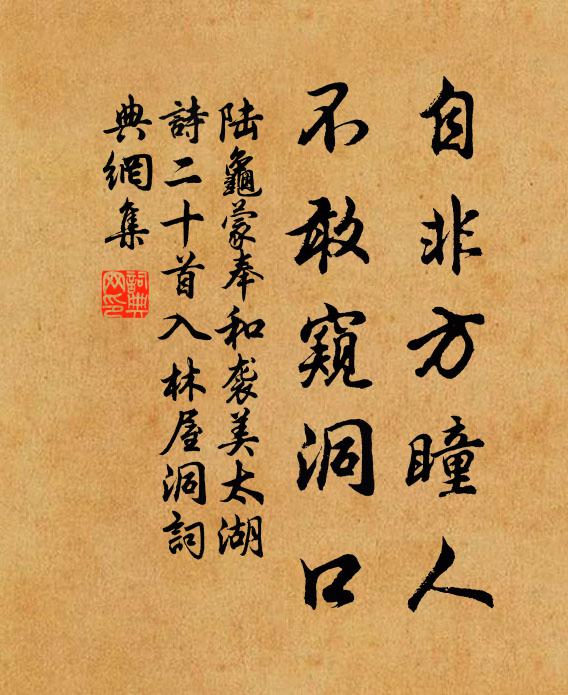 自非方瞳人
不敢窺洞口
陆龜蒙奉和袭美太湖
詩二十首入林屋洞詞
典網集
詞典网印